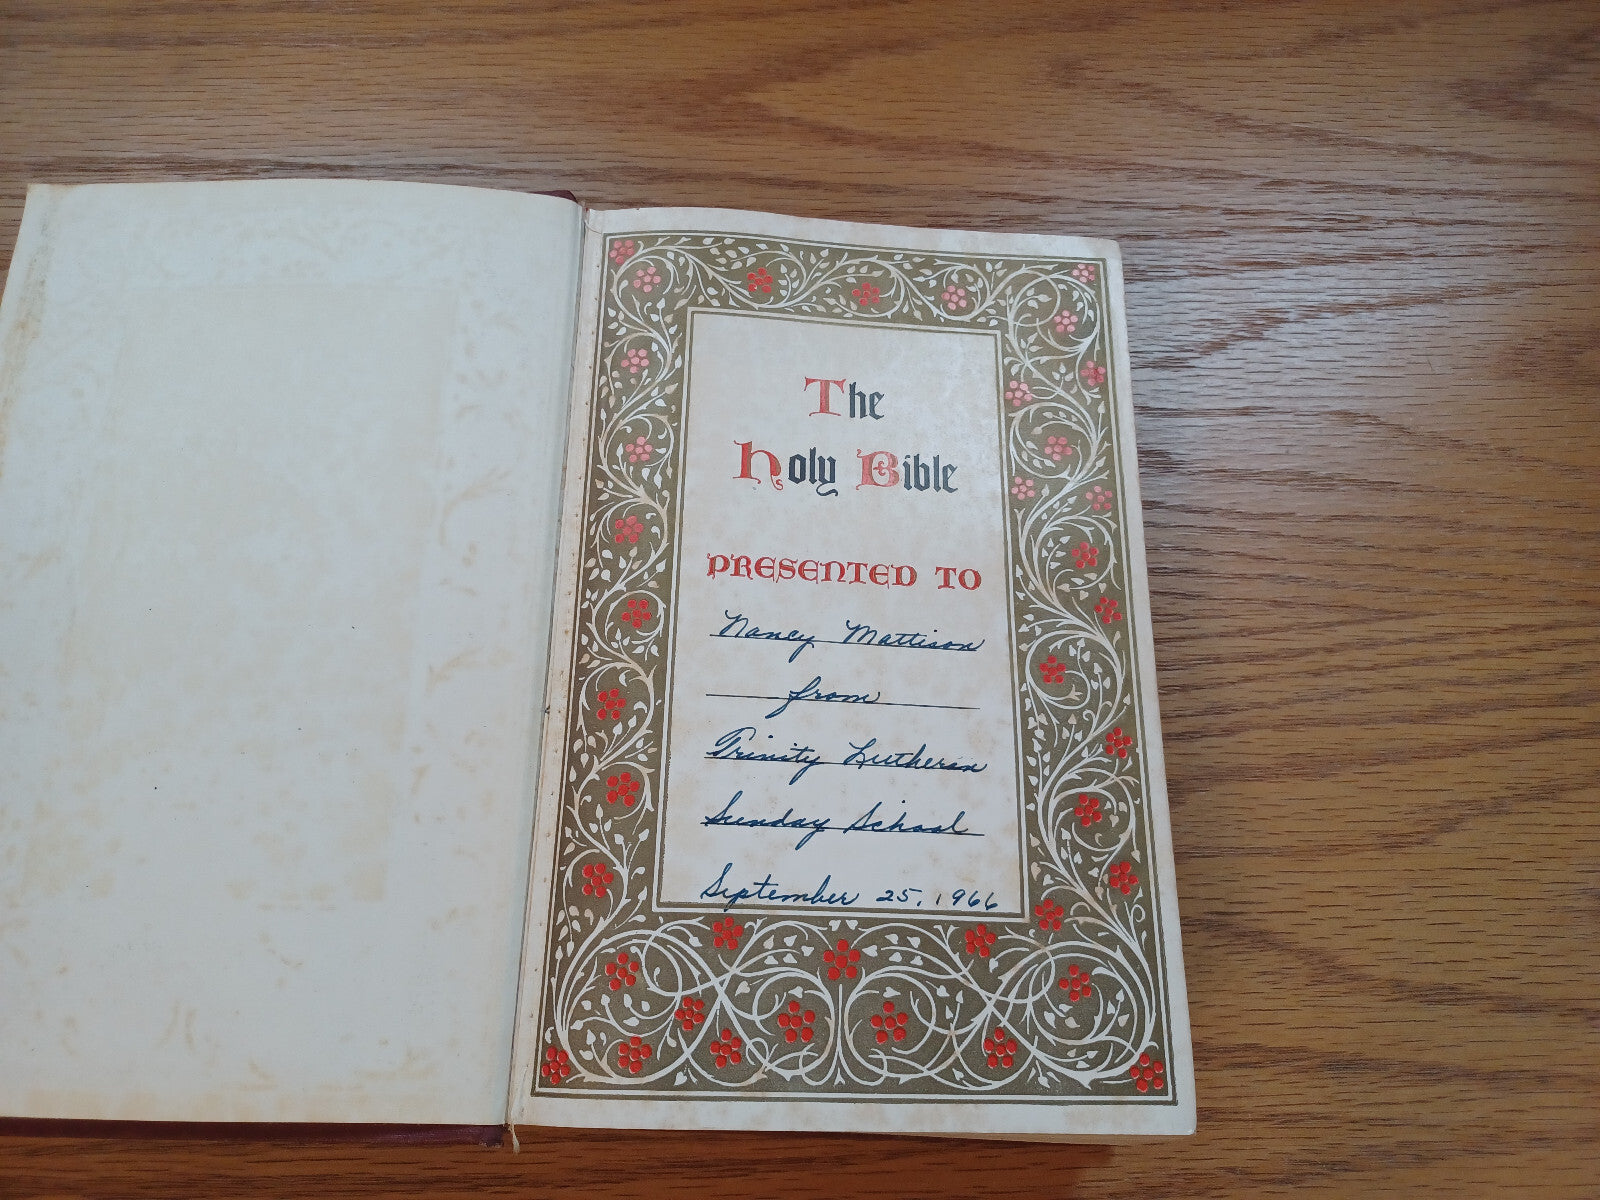 The
Holy Bible
PRESENTED TO
Nancy Mattison
from
Trinity Lutheran
Sunday School
September 25, 1966